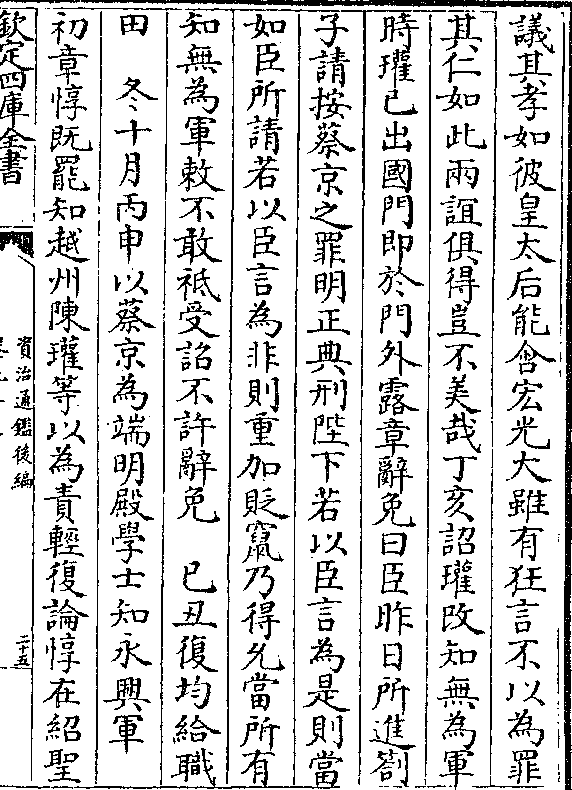 議其孝如彼皇太后能含宏光大雖有狂言不以為罪
其仁如此兩誼俱得豈不美哉丁亥詔瓘改知無為軍
時瓘已出國門即於門外露章辭免曰臣昨日所進劄
子請按蔡京之罪明正典刑陛下若以臣言為是則當
如臣所請若以臣言為非則重加貶竄乃得允當所有
知無為軍敕不敢祗受詔不許辭免　己丑復均給職
田　冬十月丙申以蔡京為端明殿學士知永興軍
初章惇既罷知越州陳瓘等以為責輕復論惇在紹聖
欽定四庫全書
資治通鑑後編
二十五